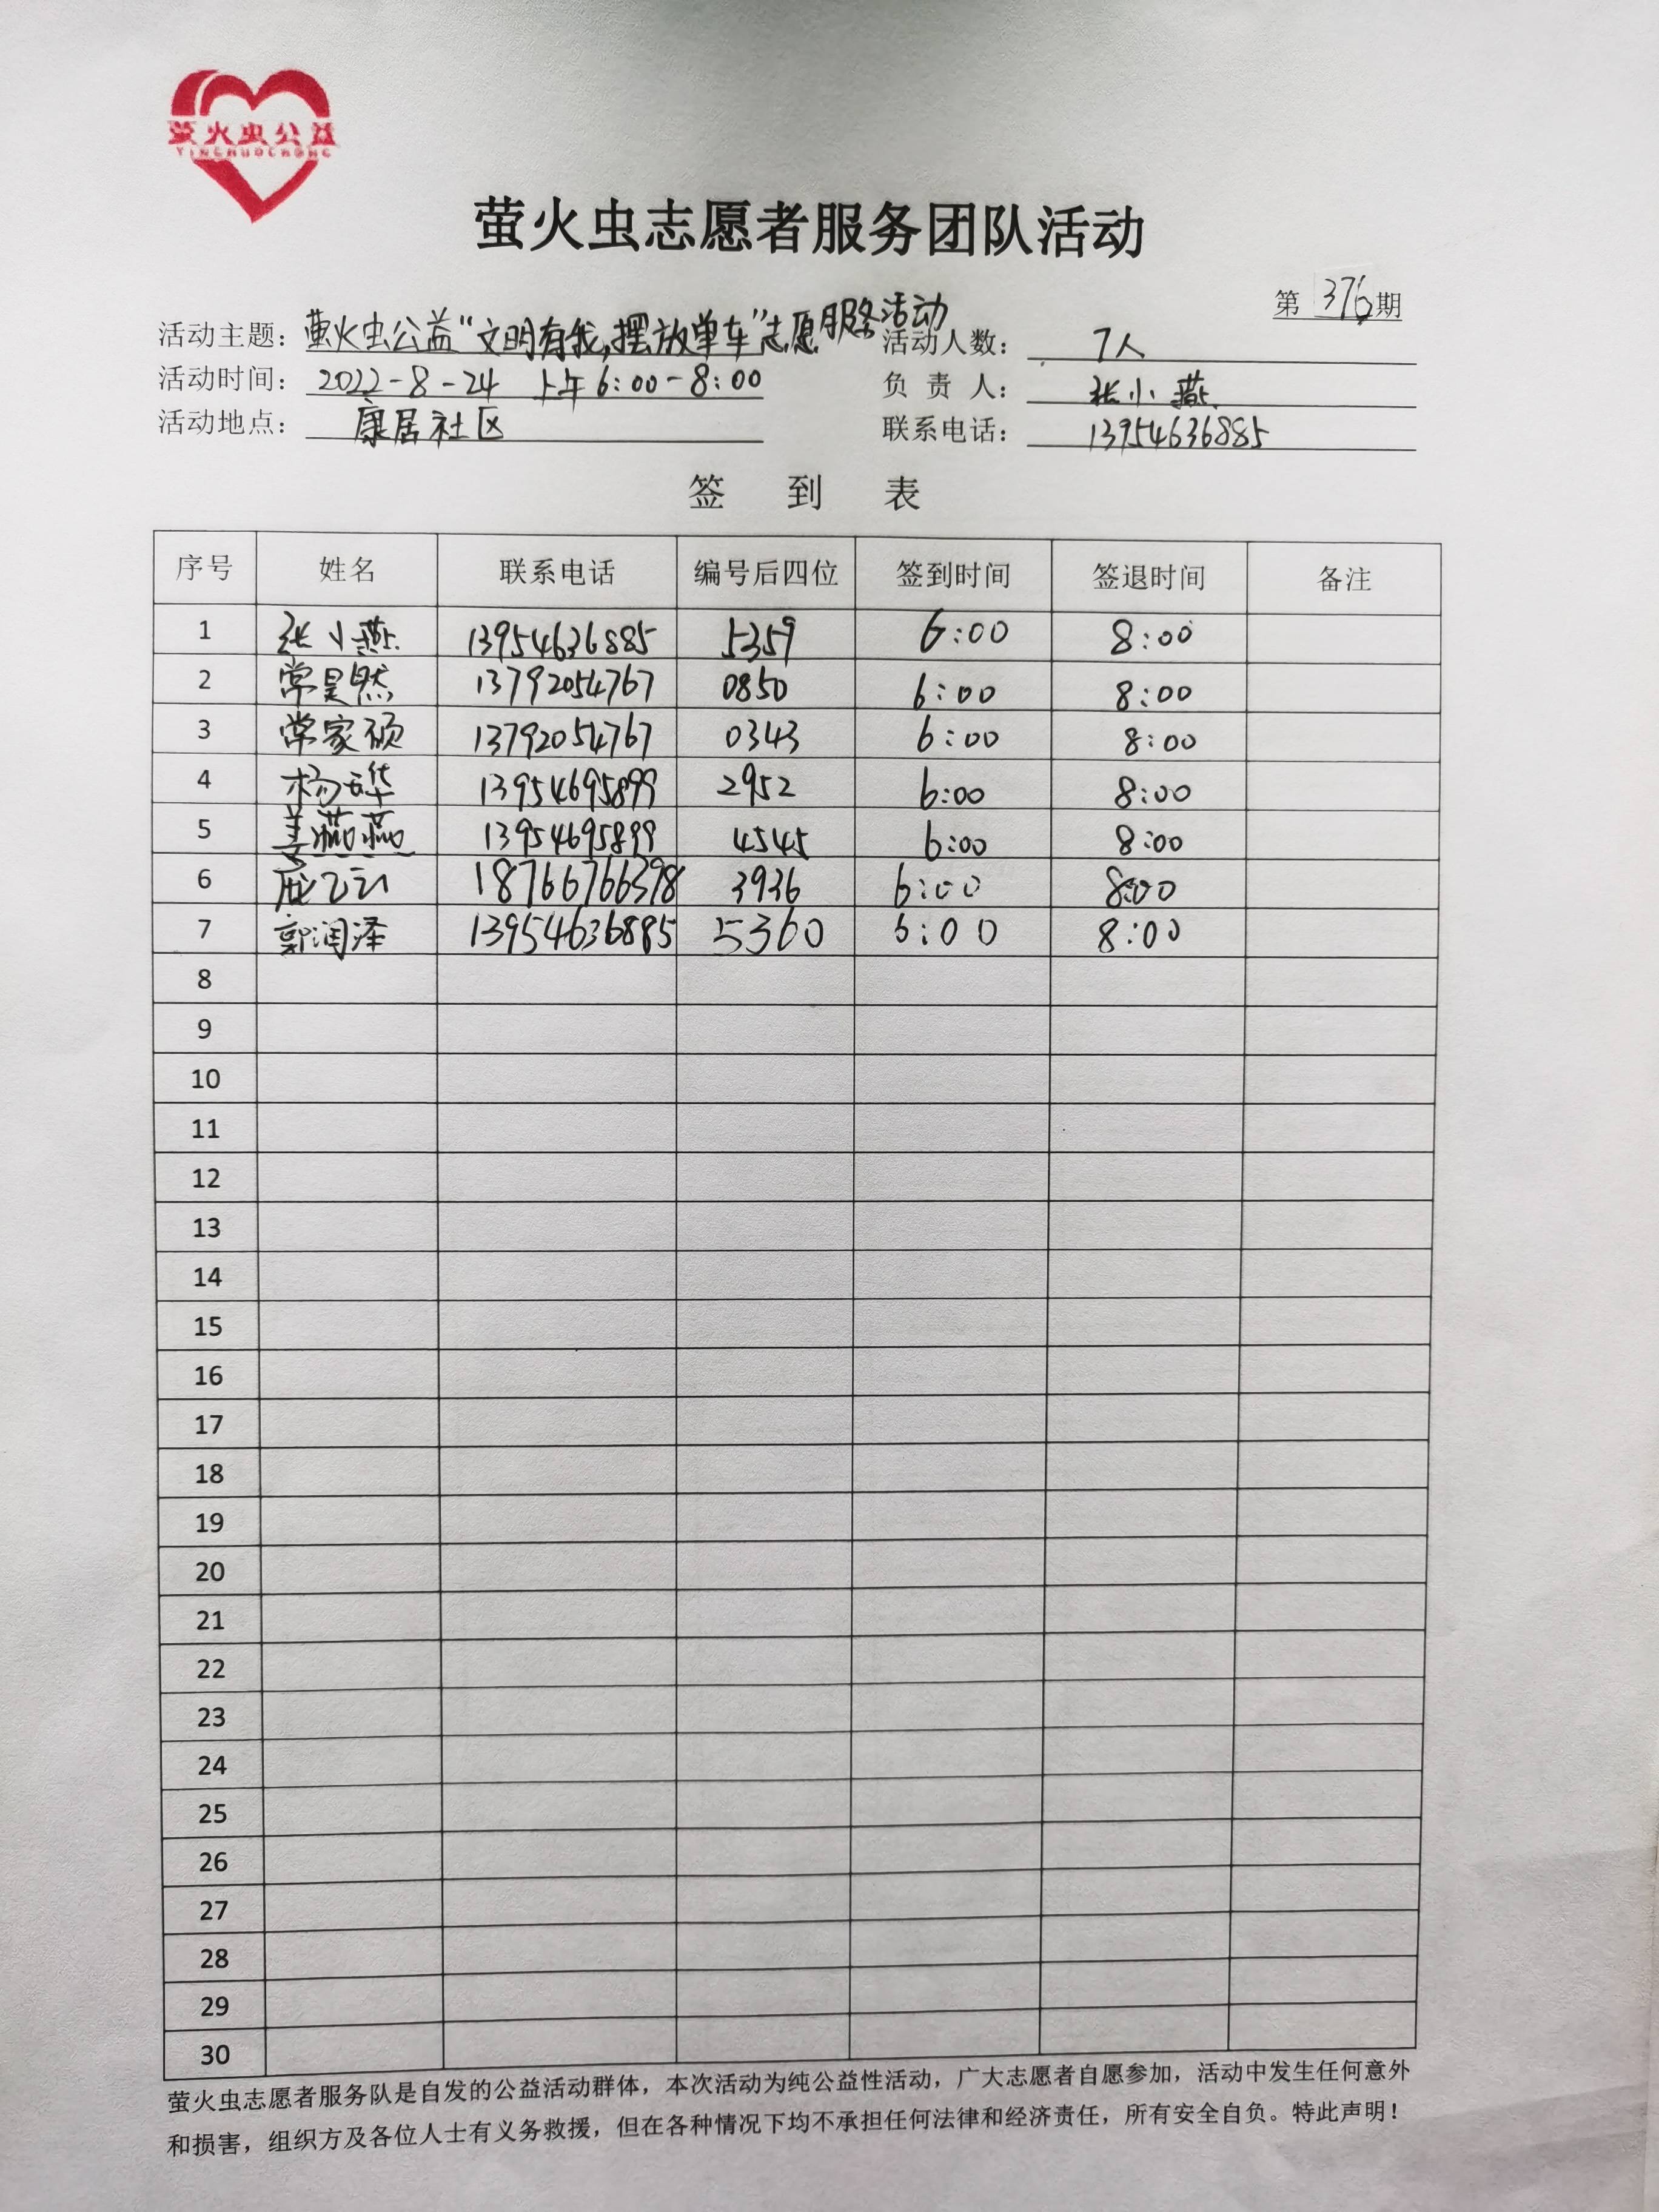 萤火虫公益
YINGHUOCHONG
萤火虫志愿者服务团队活动
第 376 期
活动主题：萤火虫公益“文明有我,摆放单车”志愿服务活动 活动人数： 7人
活动时间： 2022-8-24 上午6:00-8:00 负 责 人： 张小燕
活动地点： 康居社区 联系电话： 13954636885
签 到 表
序号 姓名 联系电话 编号后四位 签到时间 签退时间 备注
1 张小燕 13954636885 5359 6:00 8:00
2 常昊然 13792054767 0850 6:00 8:00
3 常家硕 13792054767 0343 6:00 8:00
4 杨 13954695899 2952 6:00 8:00
5 姜茹茹 13954695899 4545 6:00 8:00
6 18766766398 3936 6:00 8:00
7 郭润泽 13954636885 5360 6:00 8:00
8
9
10
11
12
13
14
15
16
17
18
19
20
21
22
23
24
25
26
27
28
29
30
萤火虫志愿者服务队是自发的公益活动群体，本次活动为纯公益性活动，广大志愿者自愿参加，活动中发生任何意外
和损害，组织方及各位人士有义务救援，但在各种情况下均不承担任何法律和经济责任，所有安全自负。特此声明！